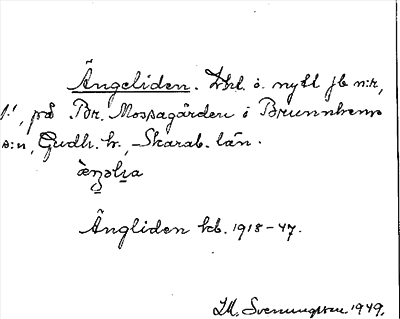 Ängeliden. Xhl. o. nytt jb n:r,
1:1, på Br. Mossagården i Brunnhems
s:n, Gudh. h., Skarab. län.
Ängliden kb. 1918-47.
Svenungsson. 1949.